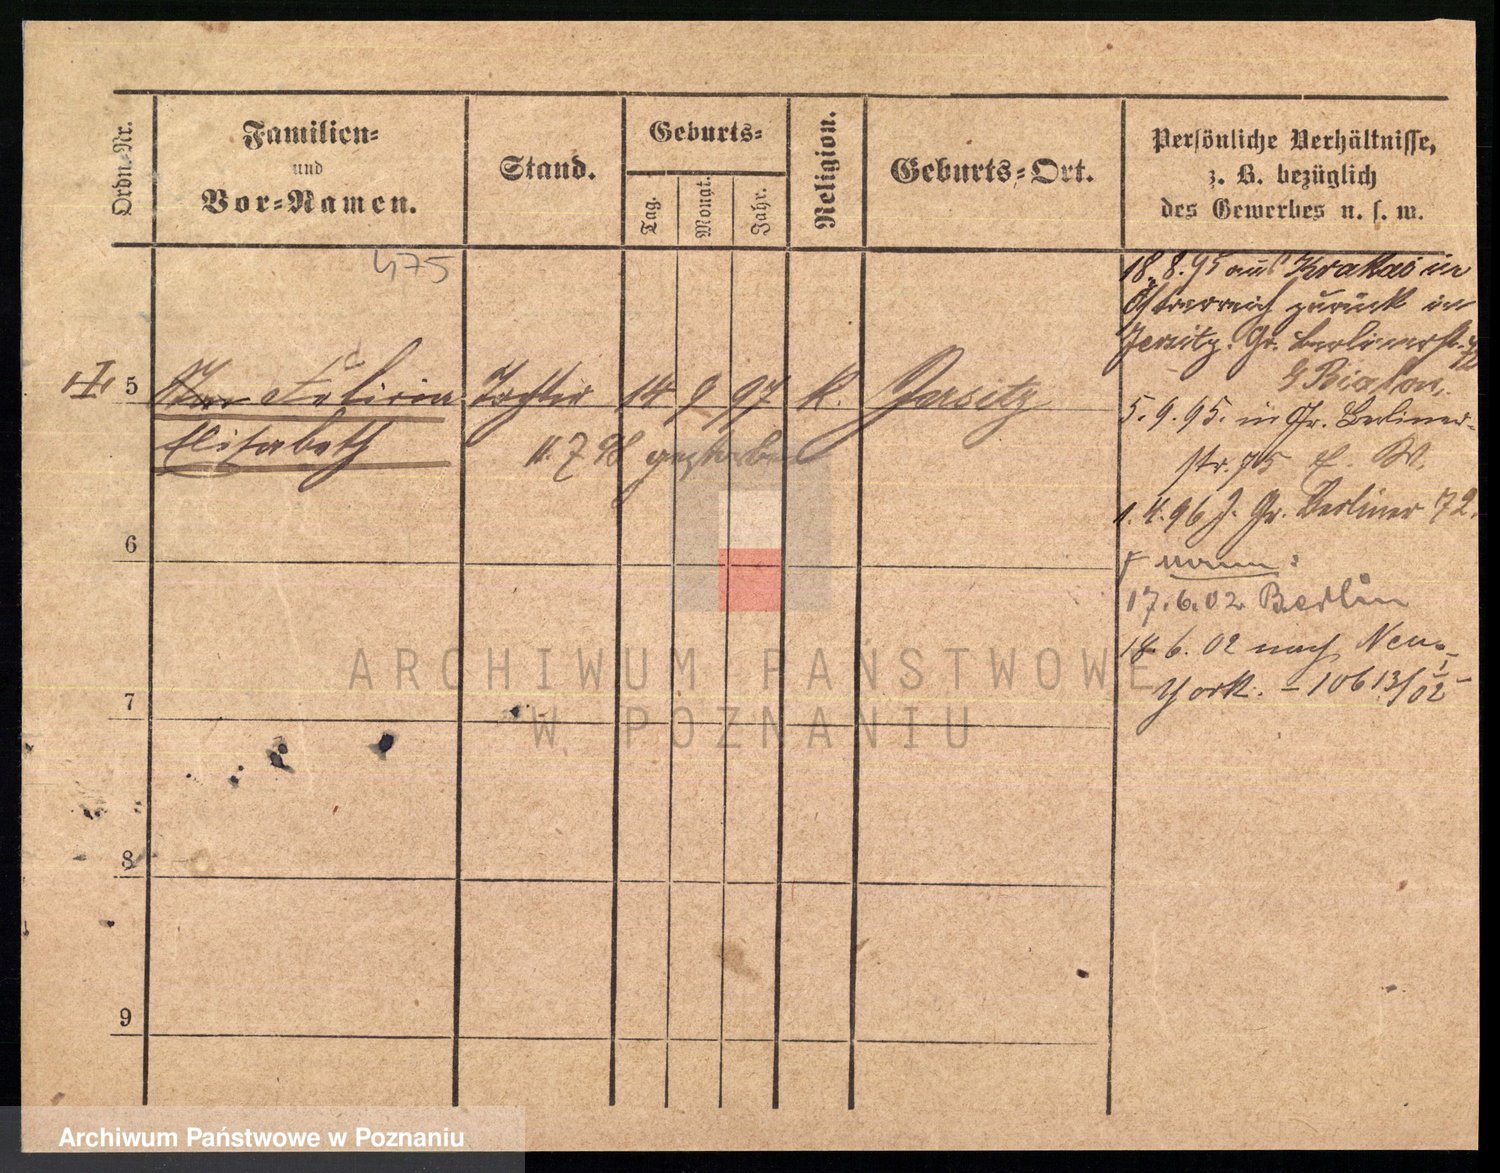 Ordn.-Nr.
Familien-
und
Vor-Namen.
Stand.
Geburts-
Tag.
Monat.
Jahr.
Religion.
Geburts-Ort.
Persönliche Verhältnisse,
z. B. bezüglich
des Gewerbes u. s. w.
475
5
Felicia
Tochter
14
9
97
k.
Jersitz
Elisabeth
11.7.98 gestorben
6
7
8
9
18.8.95 aus Krakau in
Österreich zurück in
Jersitz. Gr. Berlinerstr.
5.9.95. in Gr. Berliner-
str. 75
1.4.96 J. Gr. Berliner 72.
17.6.02 Berlin
14.6.02 nach New-
York. - 10613/02
ARCHIWUM PAŃSTWOWE
W POZNANIU
Archiwum Państwowe w Poznaniu